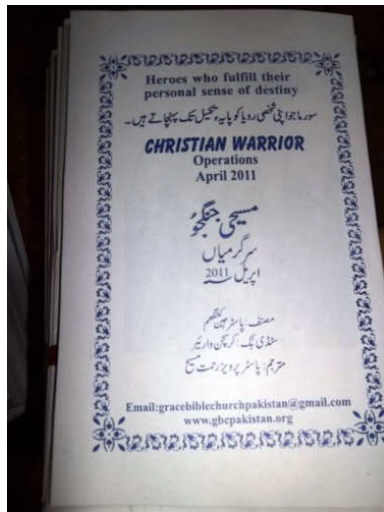 Heroes who fulfill their
personal sense of destiny
سورما جو اپنی شخصی رویا کو پایہ تکمیل تک پہنچاتے ہیں۔
CHRISTIAN WARRIOR
Operations
April 2011
مسیحی جنگجو
سرگرمیاں
اپریل 2011
مصنف: پاسٹر جین
سٹڈی بُک: کرسچن وارئیر
مترجم: پاسٹر پرویز رحمت مسیح
Email:gracebiblechurchpakistan@gmail.com
www.gbcpakistan.org